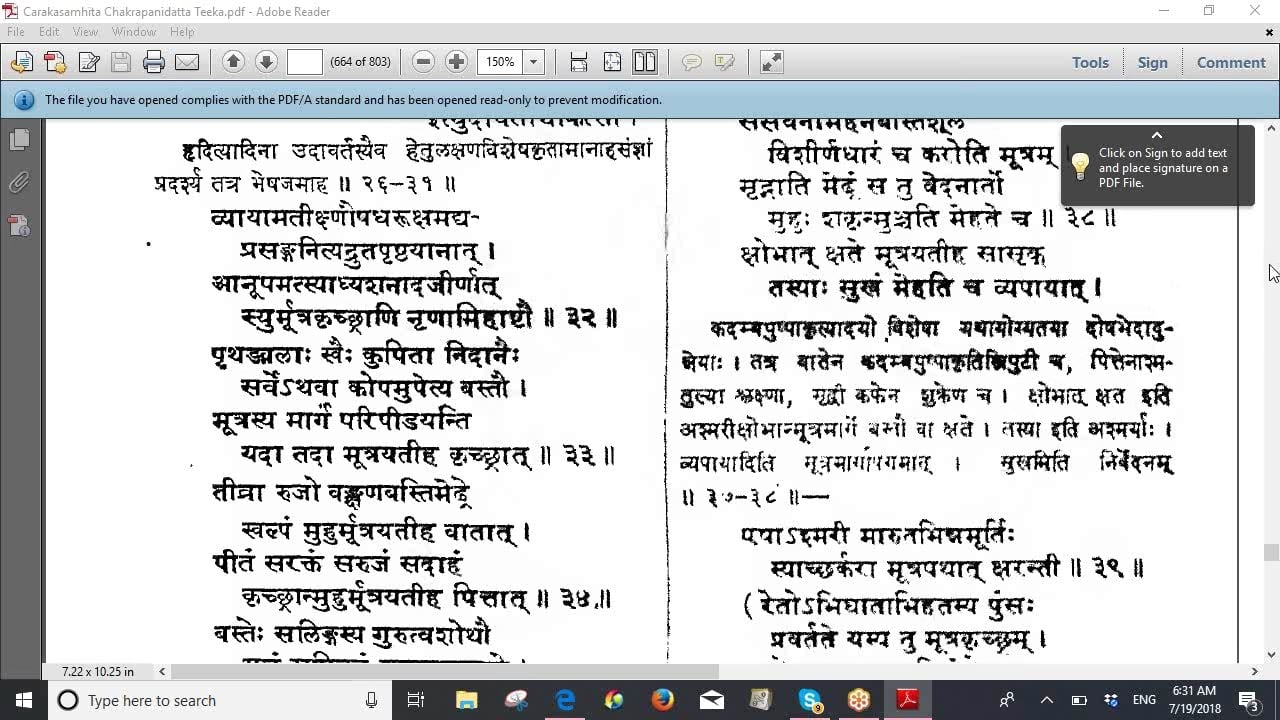 Carakasamhita Chakrapanidatta Teeka.pdf - Adobe Reader
File Edit View Window Help
(664 of 803)
150%
Tools
Sign
Comment
The file you have opened complies with the PDF/A standard and has been opened read-only to prevent modification.
Click on Sign to add text
and place signature on a
PDF File.
हृदित्यादिना उदावर्तस्यैव हेतुलक्षणविशेषकृतामानाहसंज्ञां
प्रदर्श्य तत्र भेषजमाह ॥ २६-३१ ॥
व्यायामतीक्ष्णौषधरूक्षमद्य-
प्रसङ्गनित्यद्रुतपृष्ठयानात् ।
आनूपमत्स्याध्यशनादजीर्णात्
स्युर्मूत्रकृच्छ्राणि नृणामिहाष्टौ ॥ ३२ ॥
पृथङ्मलाः स्वैः कुपिता निदानैः
सर्वेऽथवा कोपमुपेत्य बस्तौ ।
मूत्रस्य मार्गं परिपीडयन्ति
यदा तदा मूत्रयतीह कृच्छ्रात् ॥ ३३ ॥
तीव्रा रुजो वङ्क्षणबस्तिमेढ्रे
स्वल्पं मुहुर्मूत्रयतीह वातात् ।
पीतं सरक्तं सरुजं सदाहं
कृच्छ्रान्मुहुर्मूत्रयतीह पित्तात् ॥ ३४ ॥
बस्तेः सलिङ्गस्य गुरुत्वशोथौ
विशीर्णधारं च करोति मूत्रम्
मृद्नाति मेढ्रं स तु वेदनार्तो
मुहुः शकृन्मुञ्चति मेहते च ॥ ३८ ॥
क्षोभात् क्षते मूत्रयतीह सासृक्
तस्याः सुखं मेहति च व्यपायात् ।
कदम्बपुष्पाकृत्यादयो विशेषा यथायोग्यतया दोषभेदादु-
न्नेयाः । तत्र वातेन कदम्बपुष्पाकृतिस्त्रिपुटी च, पित्तेनाश्म-
तुल्या श्लक्ष्णा, मृद्वी कफेन शुक्रेण च । क्षोभात् क्षत इति
अश्मरीक्षोभान्मूत्रमार्गे बस्तौ वा क्षते । तस्या इति अश्मर्याः ।
व्यपायादिति मूत्रमार्गापगमात् । सुखमिति निर्वेदनम्
॥ ३७-३८ ॥—
एषाऽश्मरी मारुतभिन्नमूर्तिः
स्याच्छर्करा मूत्रपथात् क्षरन्ती ॥ ३९ ॥
( रेतोऽभिघाताभिहतस्य पुंसः
प्रवर्तते यस्य तु मूत्रकृच्छ्रम् ।
7.22 x 10.25 in
Type here to search
9
ENG
6:31 AM
7/19/2018
3